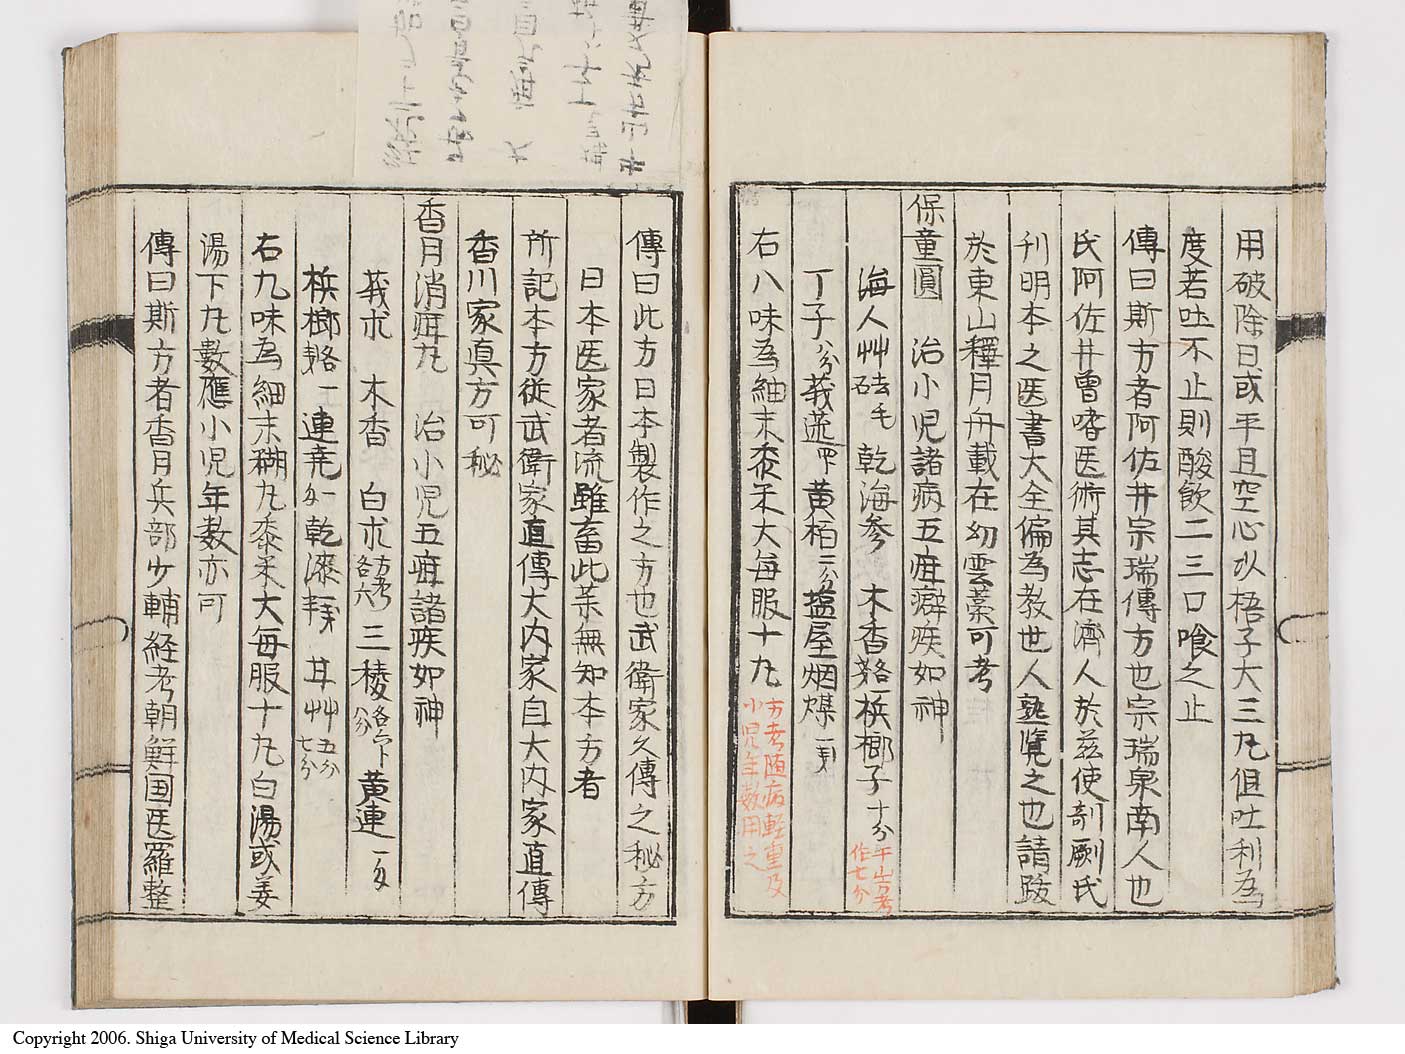 用破除日或平旦空心以梧子大三丸但吐利為
度若吐不止則酸飲二三口喰之止
傳曰斯方者阿佐井宗瑞傳方也宗瑞泉南人也
氏阿佐井曾嗜医術其志在濟人於茲使剞劂氏
刊明本之医書大全偏為教世人熟覽之也請跋
於東山釋月舟載在幻雲藁可考
保童圓 治小児諸病五疳癖疾如神
海人艸 乾海参 木香 梹榔子十分
干山方考
作七分
丁子八分 莪蒁 黄栢二分 塩屋烟煤
右八味為細末黍禾大每服十丸
方考随病軽重及
小児年數用之
傳曰此方日本製作之方也武衛家久傳之秘方
日本医家者流雖畜此茶無知本方者
所記本方従武衛家直傳大内家自大内家直傳
香川家真方可秘
香月消疳丸 治小児五疳諸疾如神
莪朮 木香 白朮 方考各六 三稜 黄連
梹榔 連壳 乾漆 甘艸 五分 七分
右九味為細末糊丸黍禾大每服十丸白湯或姜
湯下丸數應小児年數亦可
傳曰斯方者香月兵部少輔経考朝鮮国医羅整
Copyright 2006. Shiga University of Medical Science Library